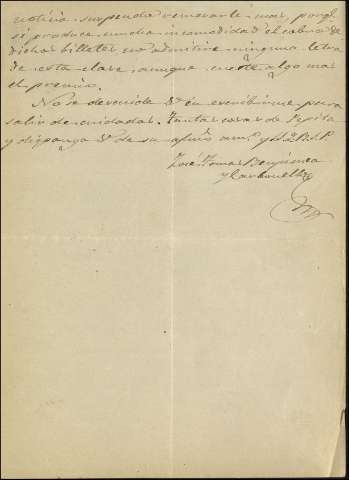 noticia suspenda remesarle mas, porqe.
si produce mucha incomodidad el cobro de
dichos billetes no admitiré ninguna letra
de esta clase, aunque cueste algo mas
el premio.
No se descuide V. en escribirme para
salir de cuidados. Tantas cosas de Pepita
y disponga V. de su afmo. am. y S. Q. B. S. M.
José Tomas
y Carbonell